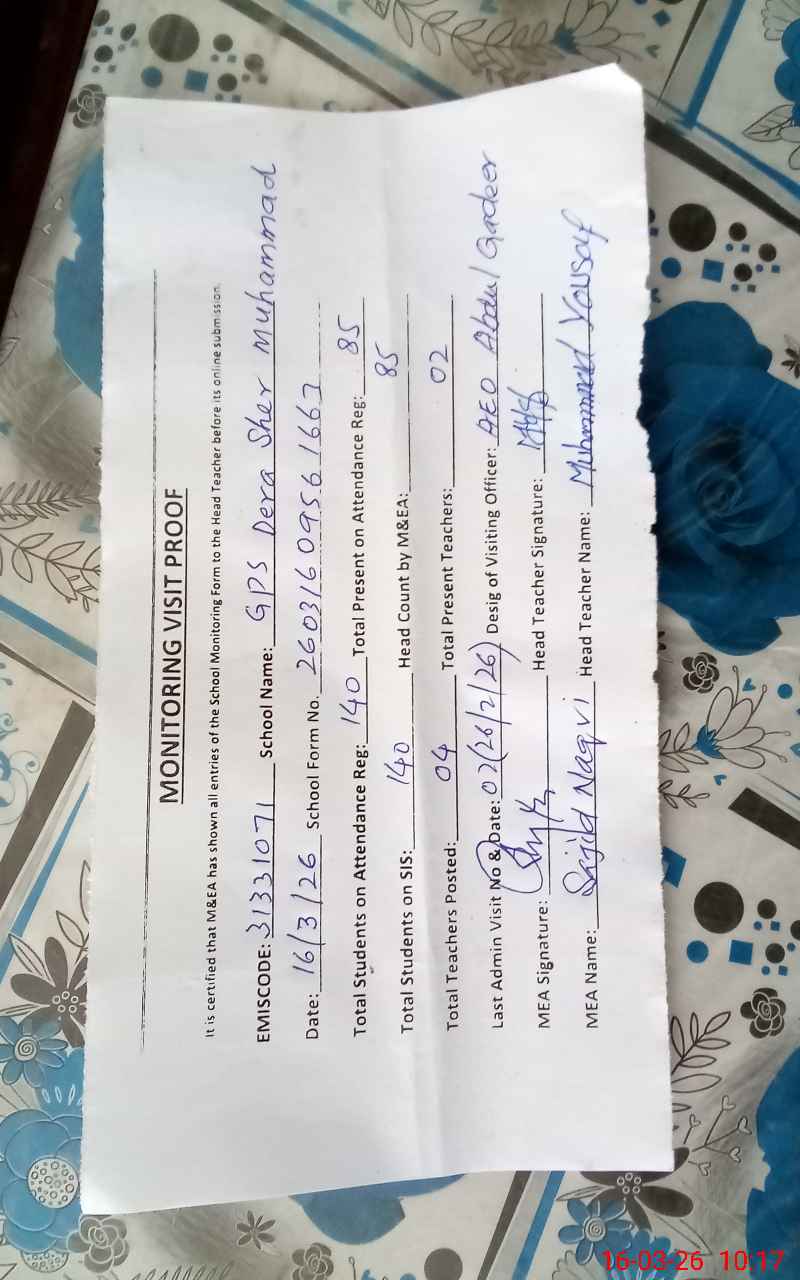 MONITORING VISIT PROOF
It is certified that M&EA has shown all entries of the School Monitoring Form to the Head Teacher before its online submission.
EMISCODE: 31331071 School Name: GPS Dera Sher Muhammad
Date: 16/3/26 School Form No. 26031609561667
Total Students on Attendance Reg: 140 Total Present on Attendance Reg: 85
Total Students on SIS: 140 Head Count by M&EA: 85
Total Teachers Posted: 04 Total Present Teachers: 02
Last Admin Visit No & Date: 02(26/2/26) Desig of Visiting Officer: AEO Abdul Qadeer
MEA Signature: Head Teacher Signature:
MEA Name: Naqvi Head Teacher Name: Muhammad Yousaf
16-03-26 10:17